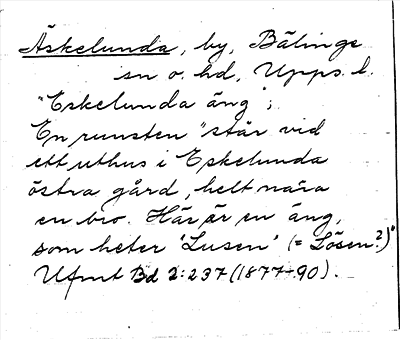 Äskelunda, by, Bälinge
sn o. hd, Upps. l.
"Eskelunda äng";
En runsten "står vid
ett uthus i Eskelunda
östra gård, helt nära
en bro. Här är en äng,
som heter 'Lusen' (= Lösen?)"
Ufmt Bd 2:237 (1877-90).